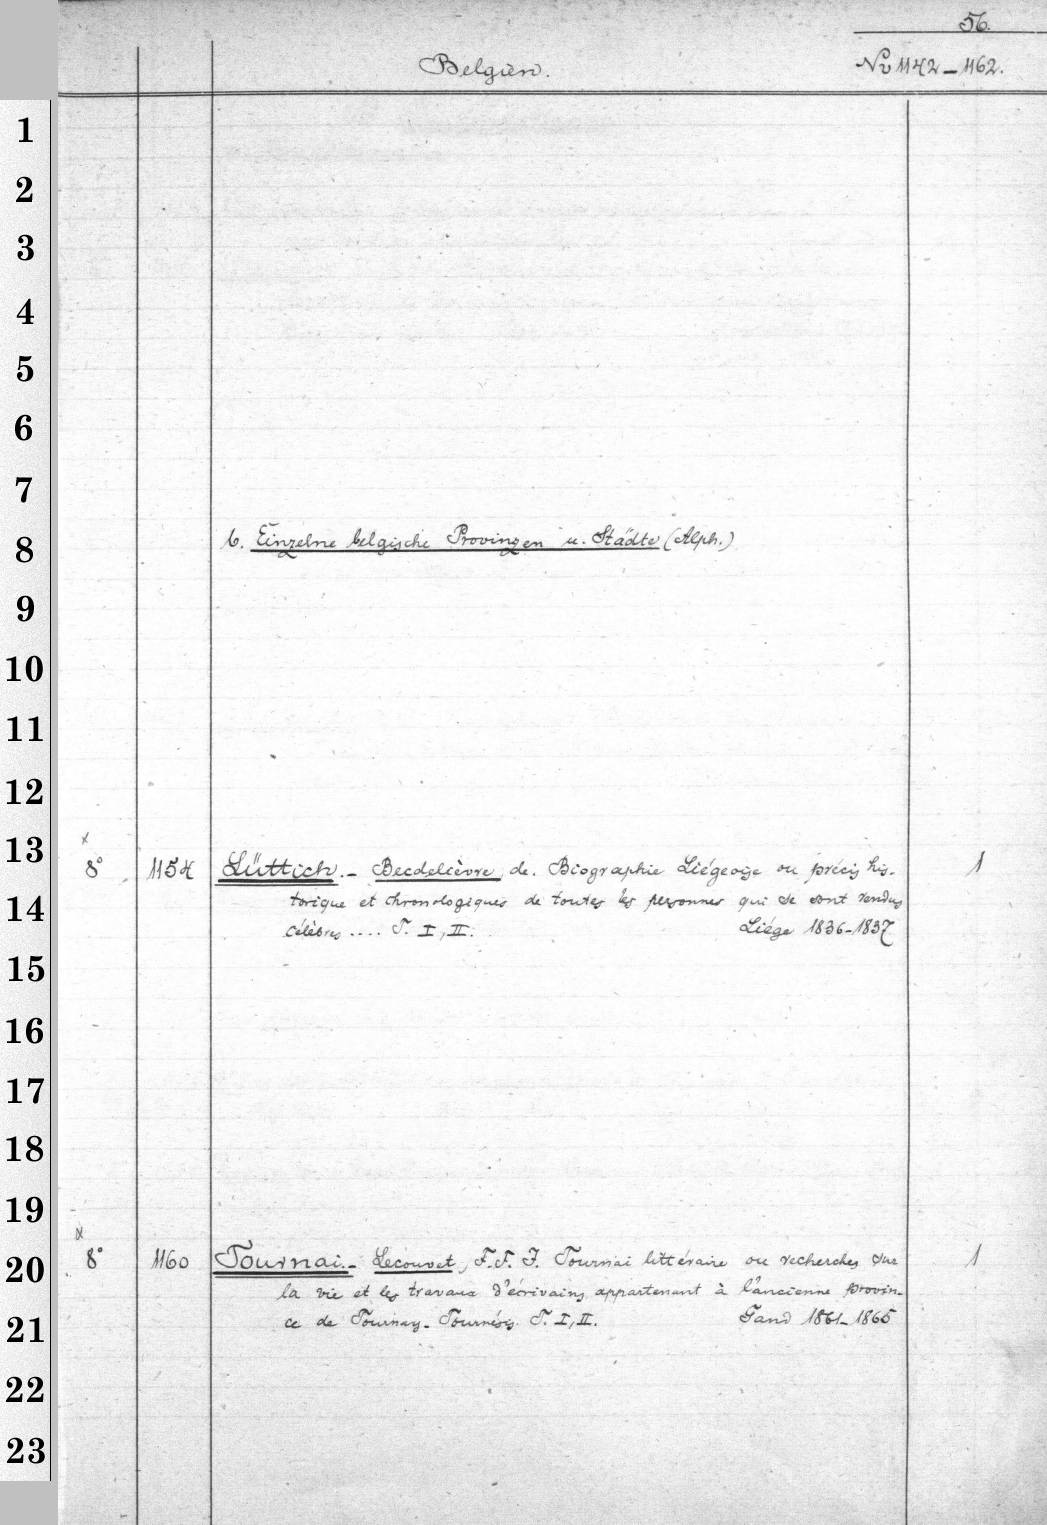 56.
Belgien. No 1142-1162.
1
2
3
4
5
6
7
8 b. Einzelne belgische Provinzen u. Städte (Alph.)
9
10
11
12
13
8° 1154 Lüttich. - Becdelièvre, de. Biographie Liégeoise ou précis his- 1
14 torique et chronologiques de toutes les personnes qui se sont rendus
célèbres .... T. I, II. Liége 1836-1837
15
16
17
18
19
20 8° 1160 Tournai. - Lecouvet, F. F. J. Tournai littéraire ou recherches sur 1
la vie et les travaux d'écrivains appartenant à l'ancienne provin-
21 ce de Tournay-Tournésis. T. I, II. Gand 1861-1865
22
23